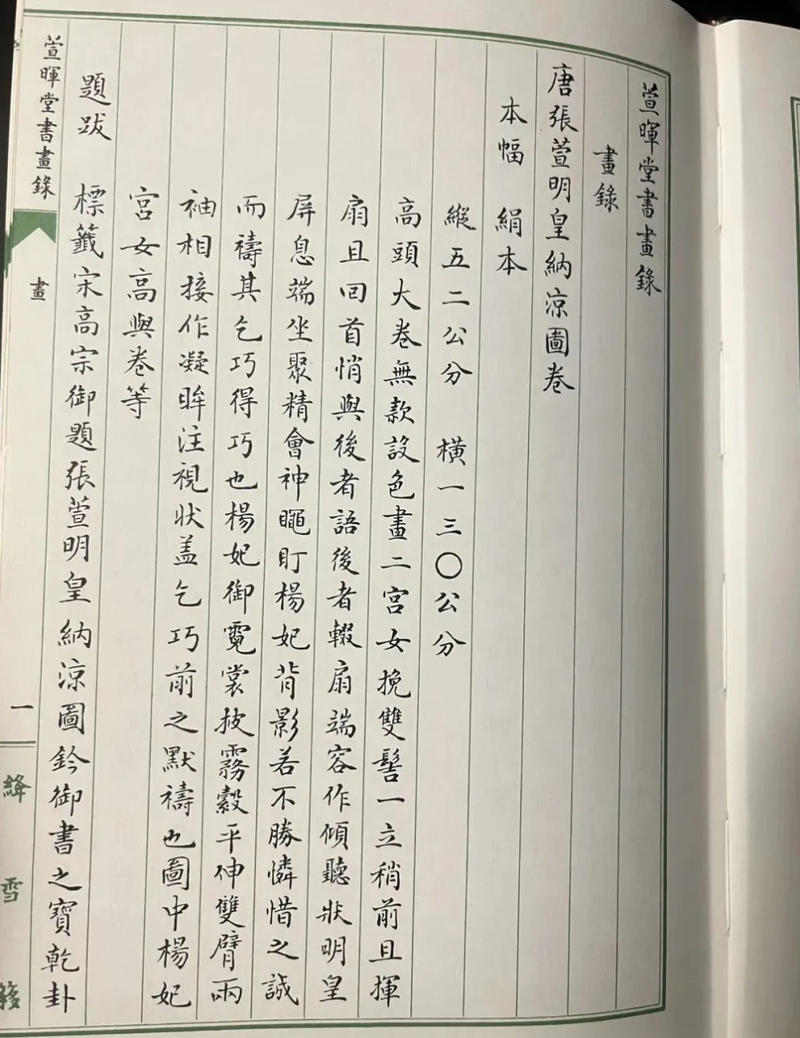 萱暉堂書畫錄
畫錄
唐張萱明皇納涼圖卷
本幅 絹本
縱五二公分 橫一三〇公分
高頭大卷無款設色畫二宮女挽雙髻一立稍前且揮
扇且回首悄與後者語後者輟扇端容作傾聽狀明皇
屏息端坐聚精會神黽盯楊妃背影若不勝憐惜之誠
而禱其乞巧得巧也楊妃御霓裳披霧縠平伸雙臂兩
袖相接作凝眸注視狀盖乞巧前之默禱也圖中楊妃
宮女高與卷等
題跋 標籤宋高宗御題張萱明皇納涼圖鈐御書之寶乾卦
萱暉堂書畫錄 畫 一 絳雪